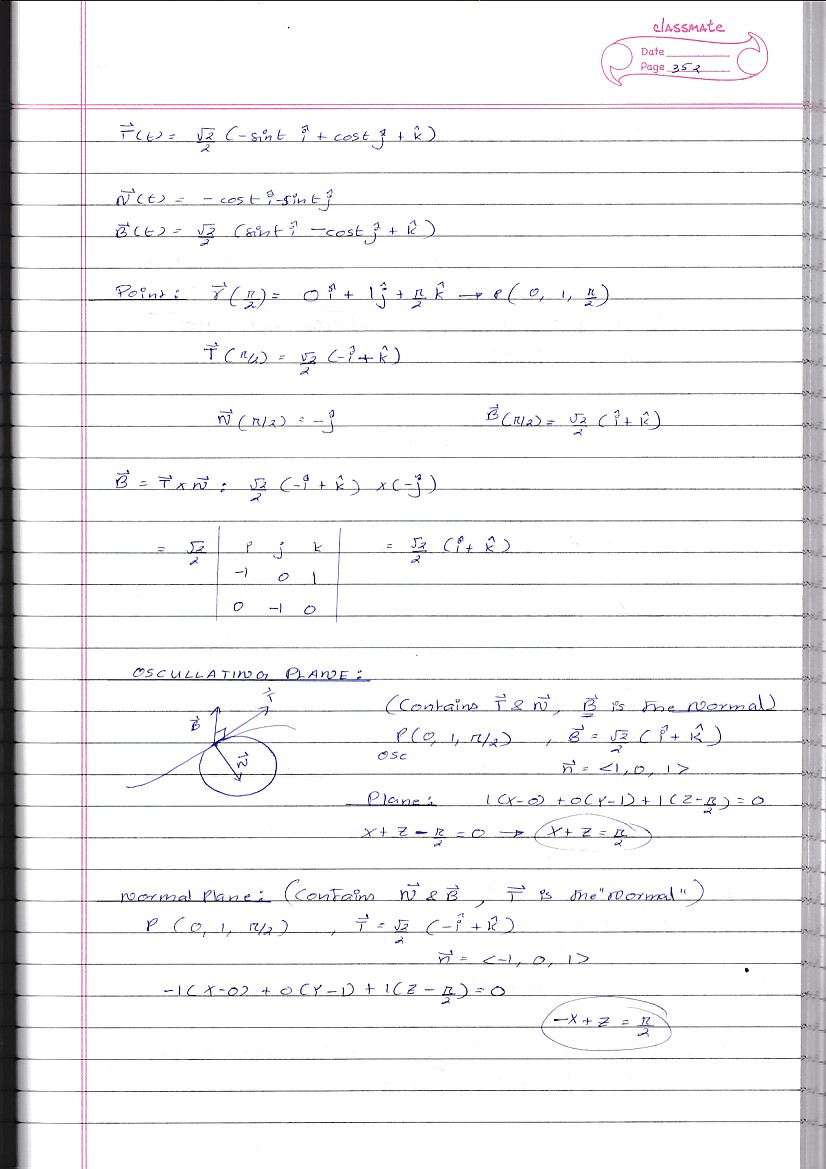 classmate
Date
Page 352
T⃗(t) = √2/2 (-sint î + cost ĵ + k̂)
N⃗(t) = - cost î - sint ĵ
B⃗(t) = √2/2 (sint î - cost ĵ + k̂)
Point: r⃗(π/2) = 0 î + 1ĵ + π/2 k̂ → P(0, 1, π/2)
T⃗(π/2) = √2/2 (-î + k̂)
N⃗(π/2) = -ĵ B⃗(π/2) = √2/2 (î + k̂)
B⃗ = T⃗ x N⃗ : √2/2 (-î + k̂) x (-ĵ)
= √2/2 | i j k | = √2/2 (î + k̂)
-1 0 1
0 -1 0
OSCULLATING PLANE:
T⃗
(Contains T⃗ & N⃗, B⃗ is the Normal)
B⃗
P(0, 1, π/2) , B⃗ = √2/2 (î + k̂)
N⃗
osc
n⃗ = <1, 0, 1>
Plane: 1(X-0) + 0(Y-1) + 1(Z-π/2) = 0
X + Z - π/2 = 0 → X + Z = π/2
Normal Plane: (Contains N⃗ & B⃗, T⃗ is the "Normal")
P (0, 1, π/2) , T⃗ = √2/2 (-î + k̂)
n⃗ = <-1, 0, 1>
-1(X-0) + 0(Y-1) + 1(Z - π/2) = 0
-X + Z = π/2